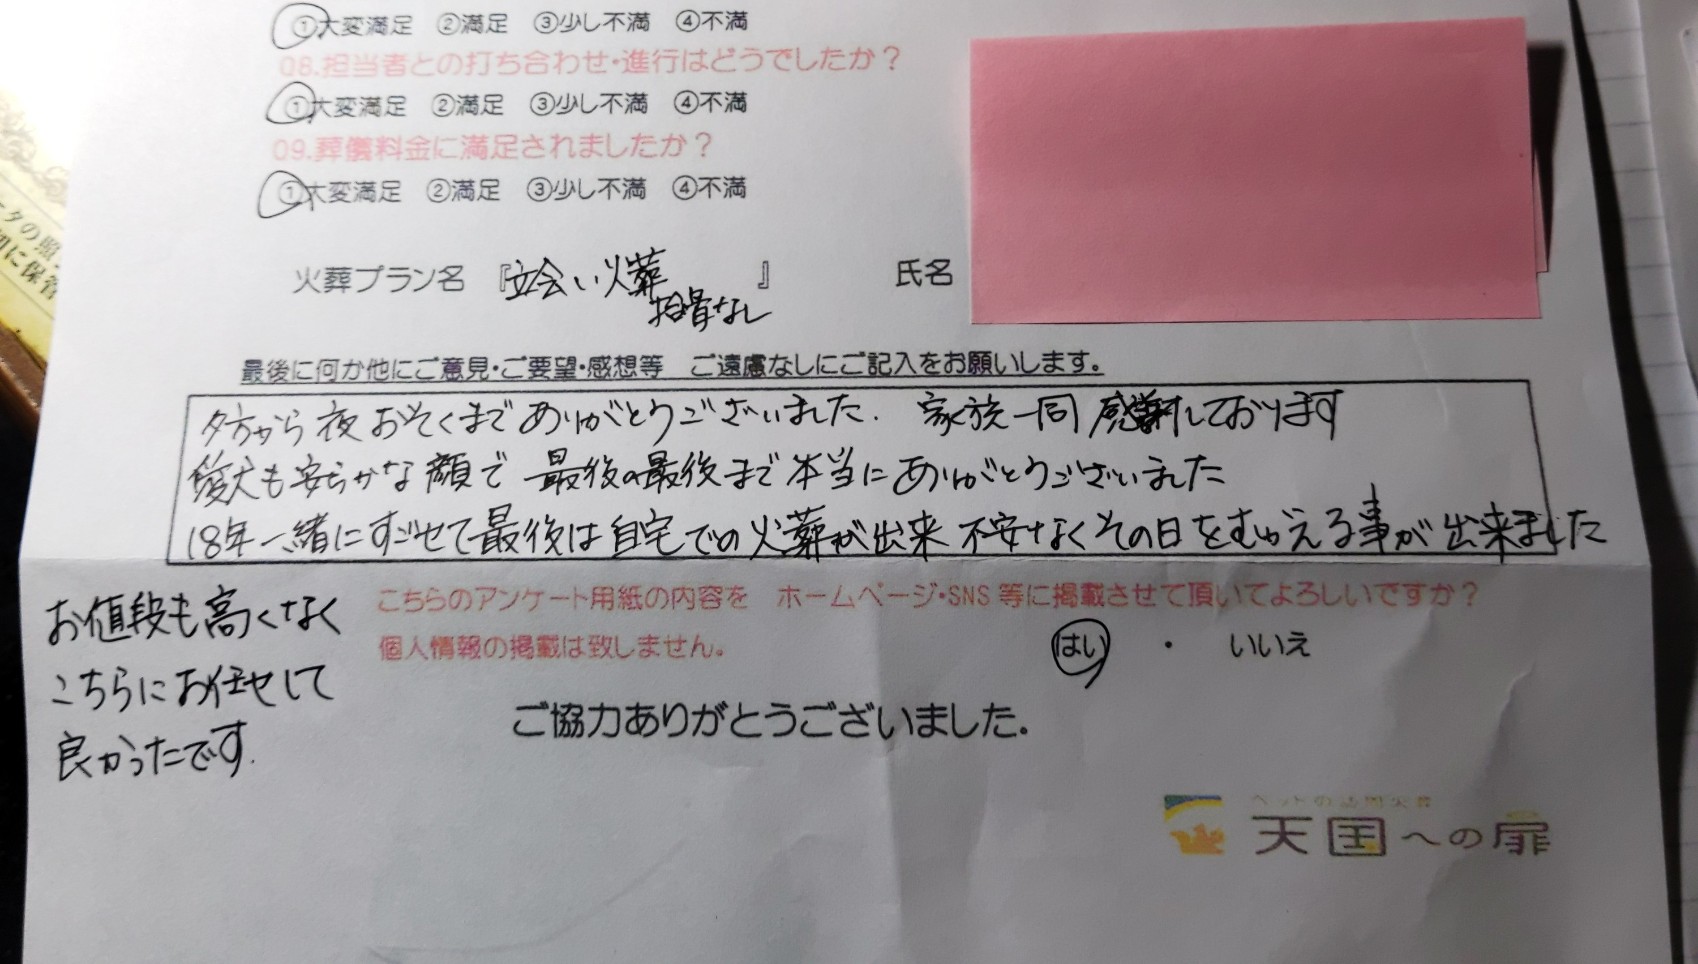 ①大変満足 ②満足 ③少し不満 ④不満
08.担当者との打ち合わせ・進行はどうでしたか？
①大変満足 ②満足 ③少し不満 ④不満
09.葬儀料金に満足されましたか？
①大変満足 ②満足 ③少し不満 ④不満
火葬プラン名 『立会い火葬 』 氏名
拾骨なし
最後に何か他にご意見・ご要望・感想等 ご遠慮なしにご記入をお願いします。
夕方から夜おそくまでありがとうございました. 家族一同感謝しております
愛犬も安らかな顔で 最後の最後まで本当にありがとうございました
18年一緒にすごせて最後は自宅での火葬が出来 不安なくその日をむかえる事が出来ました
お値段も高くなく
こちらにお任せして
良かったです.
こちらのアンケート用紙の内容を ホームページ・SNS等に掲載させて頂いてよろしいですか？
個人情報の掲載は致しません。
はい ・ いいえ
ご協力ありがとうございました。
ペットの訪問火葬
天国への扉